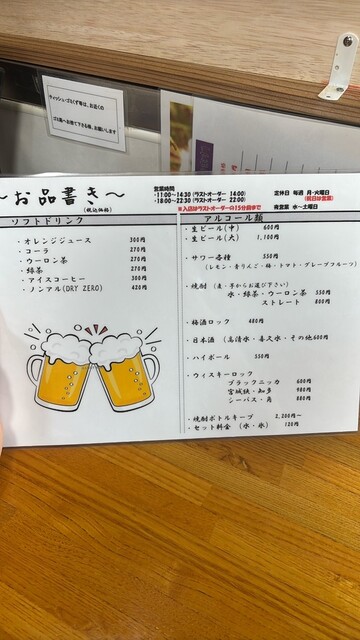 ティッシュ・ゴミくず等は、お近くの
ゴミ箱へお捨て下さる様、お願いします
～お品書き～
(税込価格)
営業時間
・11:00～14:30 (ラストオーダー 14:00)
・18:00～22:30 (ラストオーダー 22:00)
※入店はラストオーダーの15分前まで
定休日 毎週 月・火曜日
(祝日は営業)
夜営業 水～土曜日
ソフトドリンク
・オレンジジュース 300円
・コーラ 270円
・ウーロン茶 270円
・緑茶 270円
・アイスコーヒー 300円
・ノンアル(DRY ZERO) 420円
アルコール類
・生ビール(中) 600円
・生ビール(大) 1,100円
・サワー各種 550円
(レモン・青りんご・梅・トマト・グレープフルーツ)
・焼酎 (麦・芋からお選び下さい)
水・緑茶・ウーロン茶 550円
ストレート 800円
・梅酒ロック 480円
・日本酒 (高清水・喜久水・その他600円
・ハイボール 550円
・ウィスキーロック
ブラックニッカ 600円
宮城狭・知多 980円
シーバス・角 800円
・焼酎ボトルキープ 2,200円～
・セット料金 (水、氷) 120円